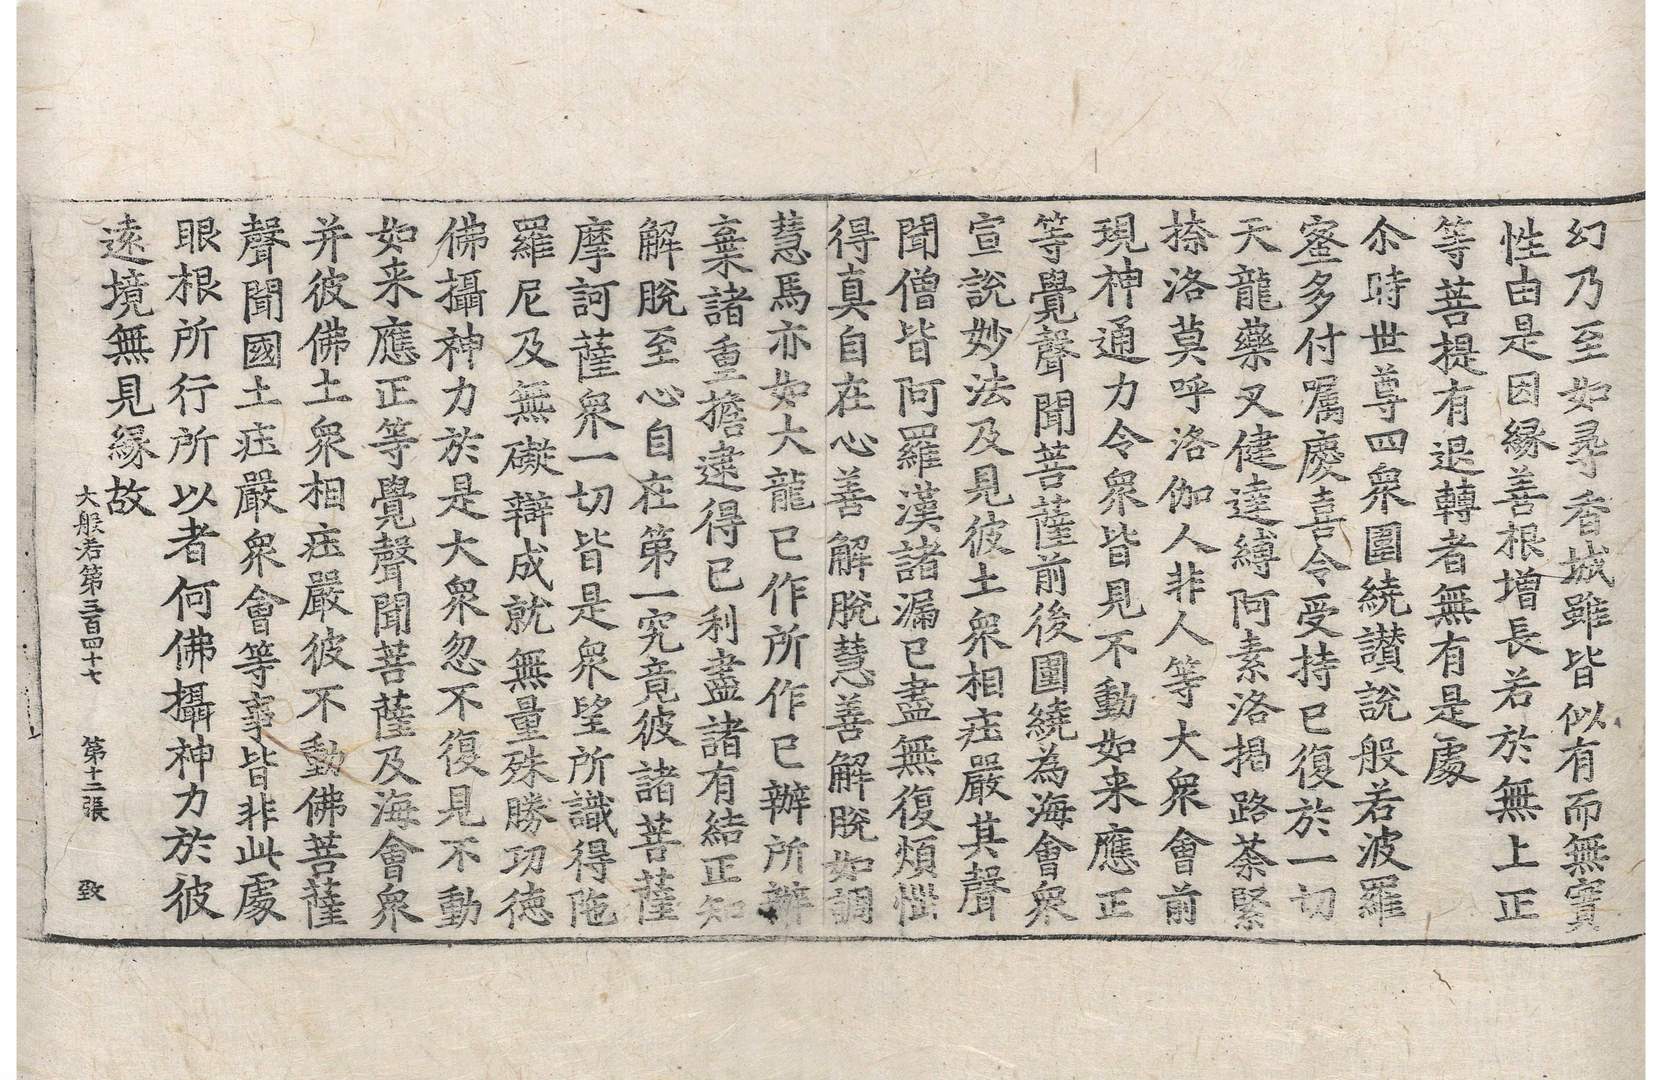 幻乃至如尋香城雖皆似有而無實
性由是因緣善根增長若於無上正
等菩提有退轉者無有是處
尒時世尊四衆圍繞讃說般若波羅
蜜多付嘱慶喜令受持已復於一切
天龍藥叉健達縛阿素洛揭路荼緊
捺洛莫呼洛伽人非人等大衆會前
現神通力令衆皆見不動如来應正
等覺聲聞菩薩前後圍繞為海會衆
宣說妙法及見彼土衆相庄嚴其聲
聞僧皆阿羅漢諸漏已盡無復煩惱
得真自在心善解脫慧善解脫如調
慧馬亦如大龍已作所作已辦所辦
棄諸重擔逮得已利盡諸有結正知
解脫至心自在第一究竟彼諸菩薩
摩訶薩衆一切皆是衆望所識得陁
羅尼及無礙辯成就無量殊勝功徳
佛攝神力於是大衆忽不復見不動
如来應正等覺聲聞菩薩及海會衆
并彼佛土衆相庄嚴彼不動佛菩薩
聲聞國土庄嚴衆會等事皆非此處
眼根所行所以者何佛攝神力於彼
遠境無見緣故
大般若第三百四十七 第十二張 致